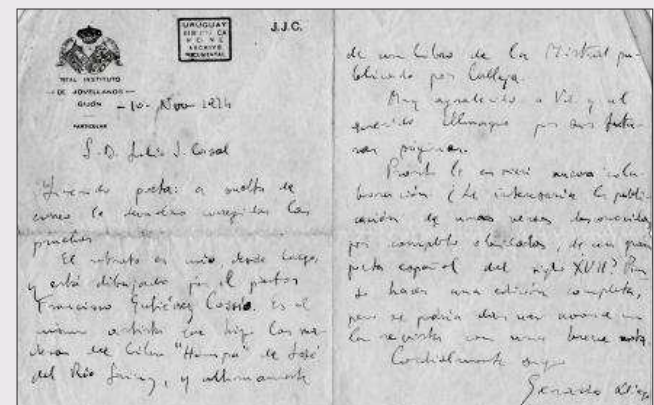 J.J.C.
URUGUAY
BIBLIOTECA
ARCHIVO
DOCUMENTAL
REAL INSTITUTO
— DE JOVELLANOS —
GIJÓN — 10 - Nov 1924
PARTICULAR
S. D. Julio J. Casal
Querido poeta: a vuelta de
correo le devuelvo corregidas las
pruebas
El retrato es mío, desde luego,
y está dibujado por el pintor
Francisco Gutiérrez Cossío. Es el
mismo artista que hizo las ma-
deras del libro "Hampa" de José
del Río Sainz, y últimamente
de un libro de la Mistral pu-
blicado por Calleja.
Muy agradecido a Vd. y al
querido por sus futu-
ras páginas.
Pronto le enviaré nueva cola-
boración ¿Le interesaría la publi-
cación de unos versos desconocidos,
por completo olvidados, de un gran
poeta español del siglo XVII?
se hace una edición completa,
pero se podría dar un avance en
la revista con una breve nota.
Cordialmente suyo
Gerardo Diego